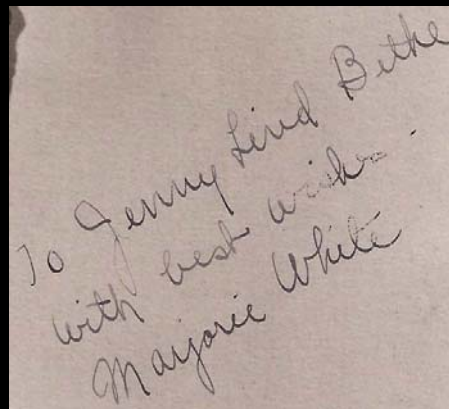 To Jenny Lind Bethe
with best wishes.
Marjorie White